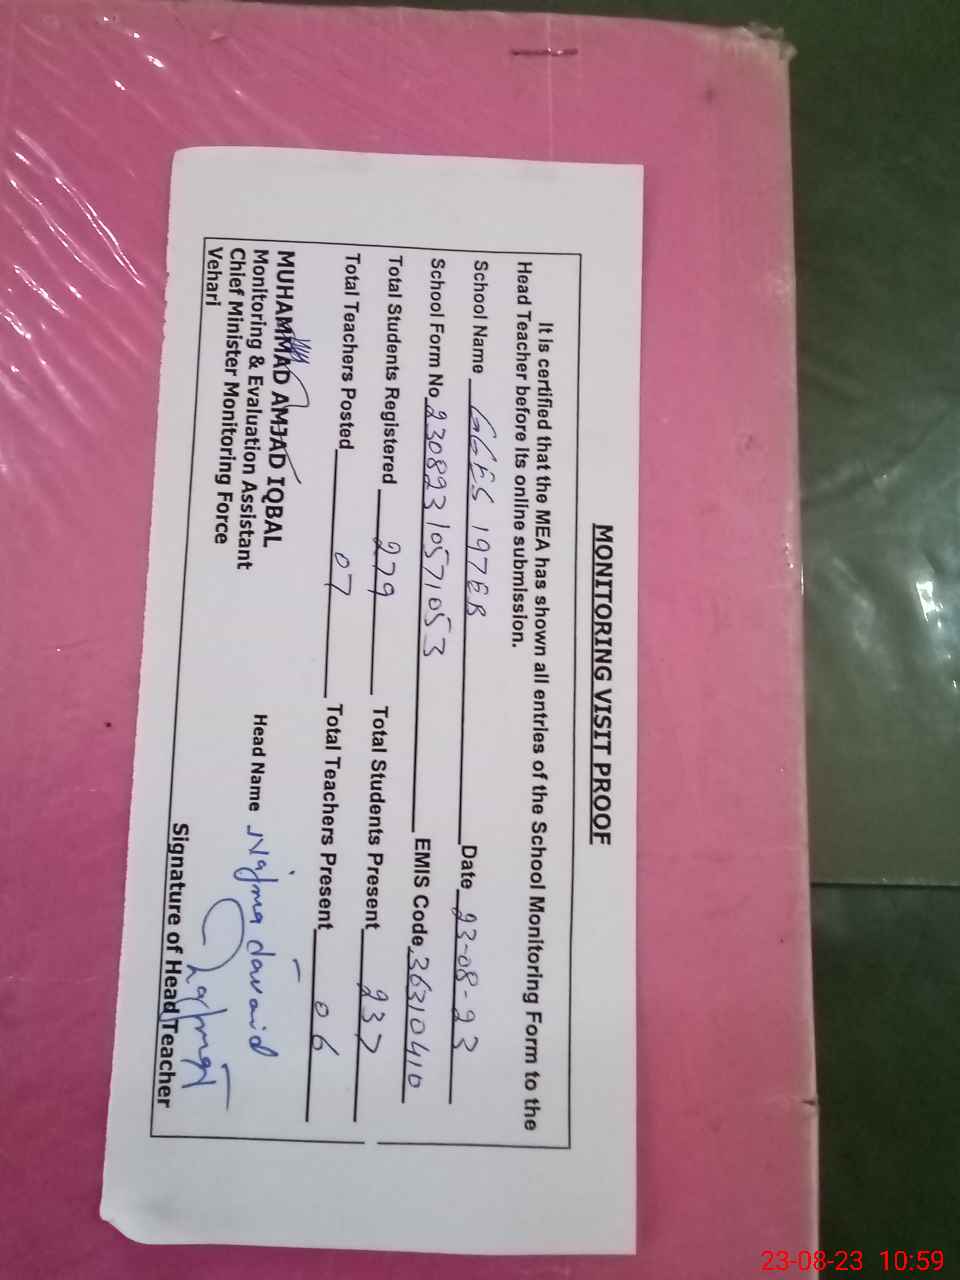 MONITORING VISIT PROOF
It is certified that the MEA has shown all entries of the School Monitoring Form to the
Head Teacher before its online submission.
School Name GGES 197EB Date 23-08-23
School Form No 23082310571053 EMIS Code 36310410
Total Students Registered 279 Total Students Present 237
Total Teachers Posted 07 Total Teachers Present 06
MUHAMMAD AMJAD IQBAL
Monitoring & Evaluation Assistant
Chief Minister Monitoring Force
Vehari
Head Name Najma
Signature of Head Teacher
23-08-23 10:59